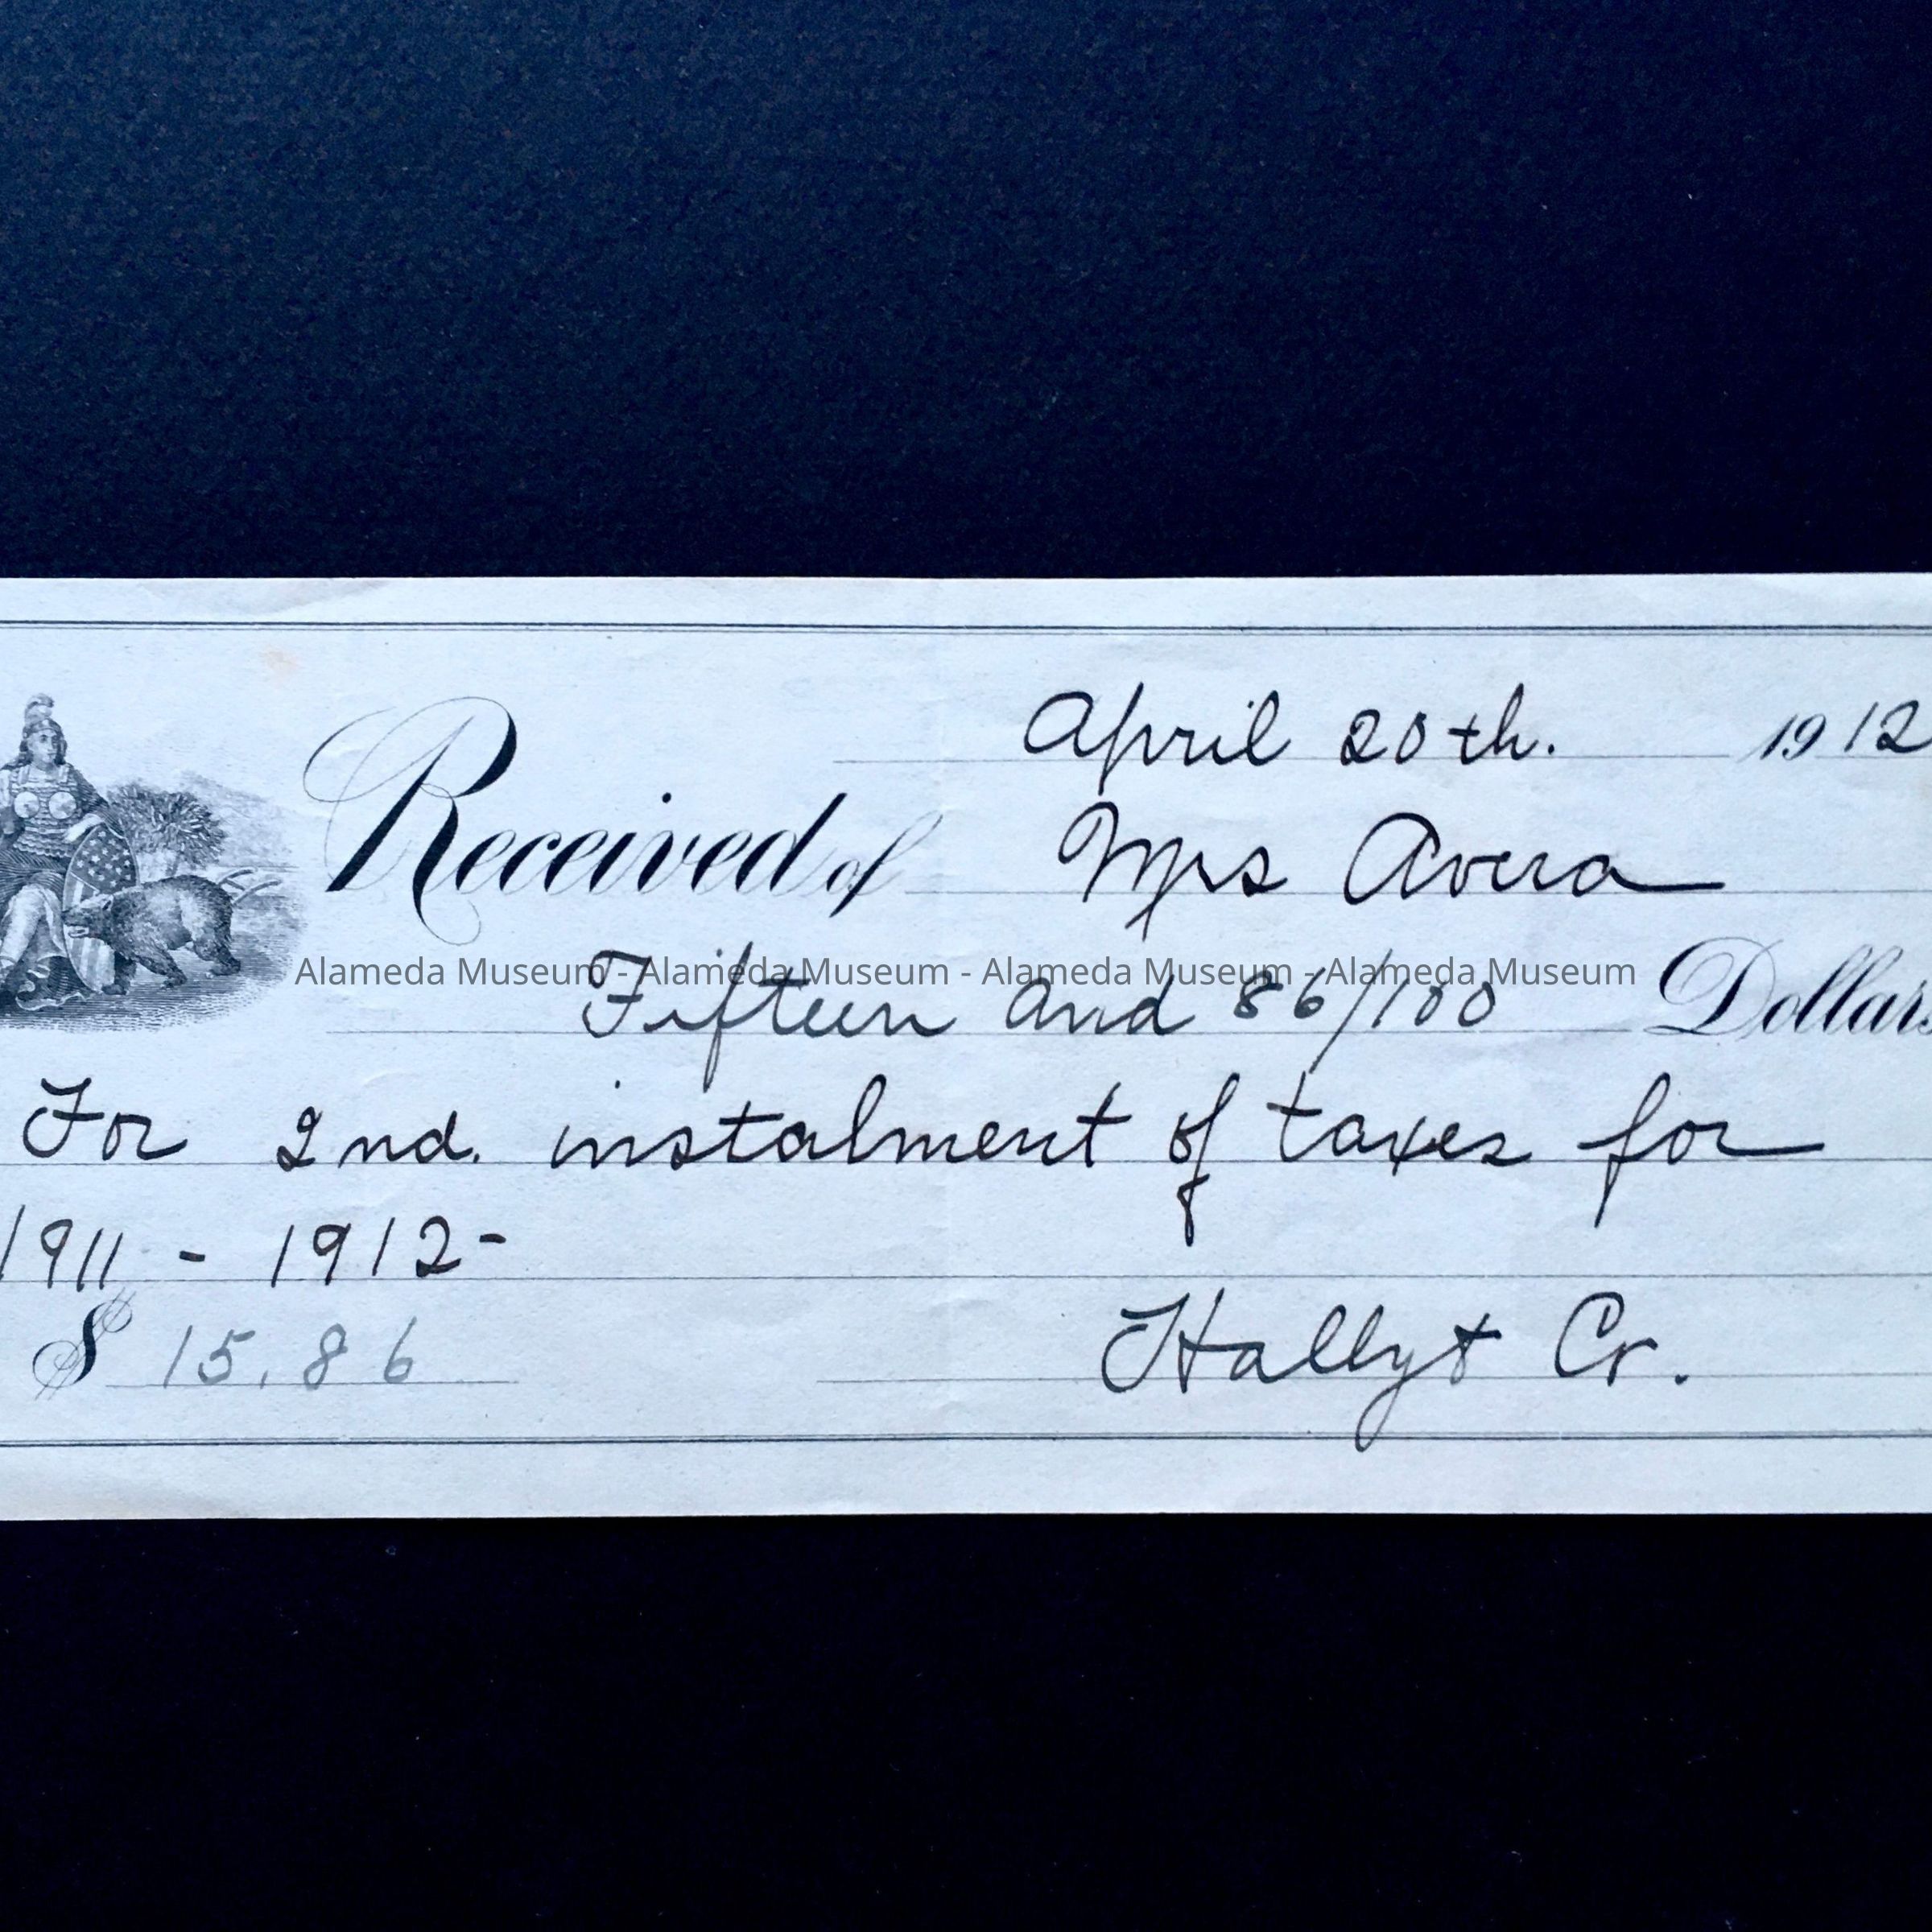 April 20th. 1912
Received of Mrs Avera
Alameda Museum - Alameda Museum - Alameda Museum - Alameda Museum
Fifteen and 86/100 Dollars
For 2nd. instalment of taxes for
1911 - 1912-
$ 15.86